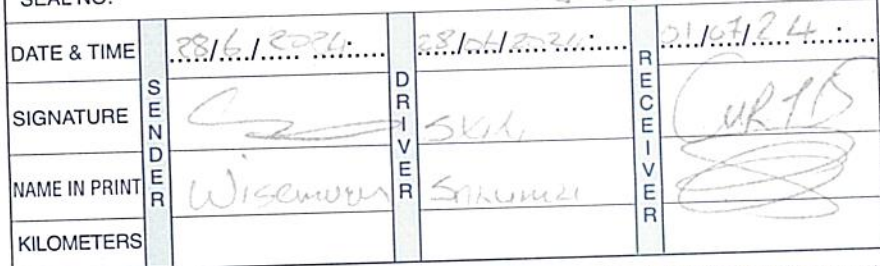 SEAL NO.
DATE & TIME SENDER 28/6/2024 DRIVER 28/06/2024 RECEIVER 01/07/24
SIGNATURE CURTIS
NAME IN PRINT Wiseman
KILOMETERS